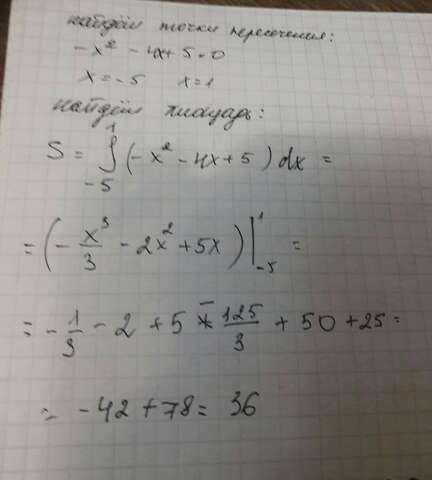 найдём точки пересечения:
-x² - 4x + 5 = 0
x = -5 x = 1
найдём площадь:
S = ∫₋₅¹ (-x² - 4x + 5) dx =
= (-x³/3 - 2x² + 5x) |₋₅¹ =
= -1/3 - 2 + 5 - 125/3 + 50 + 25 =
= -42 + 78 = 36